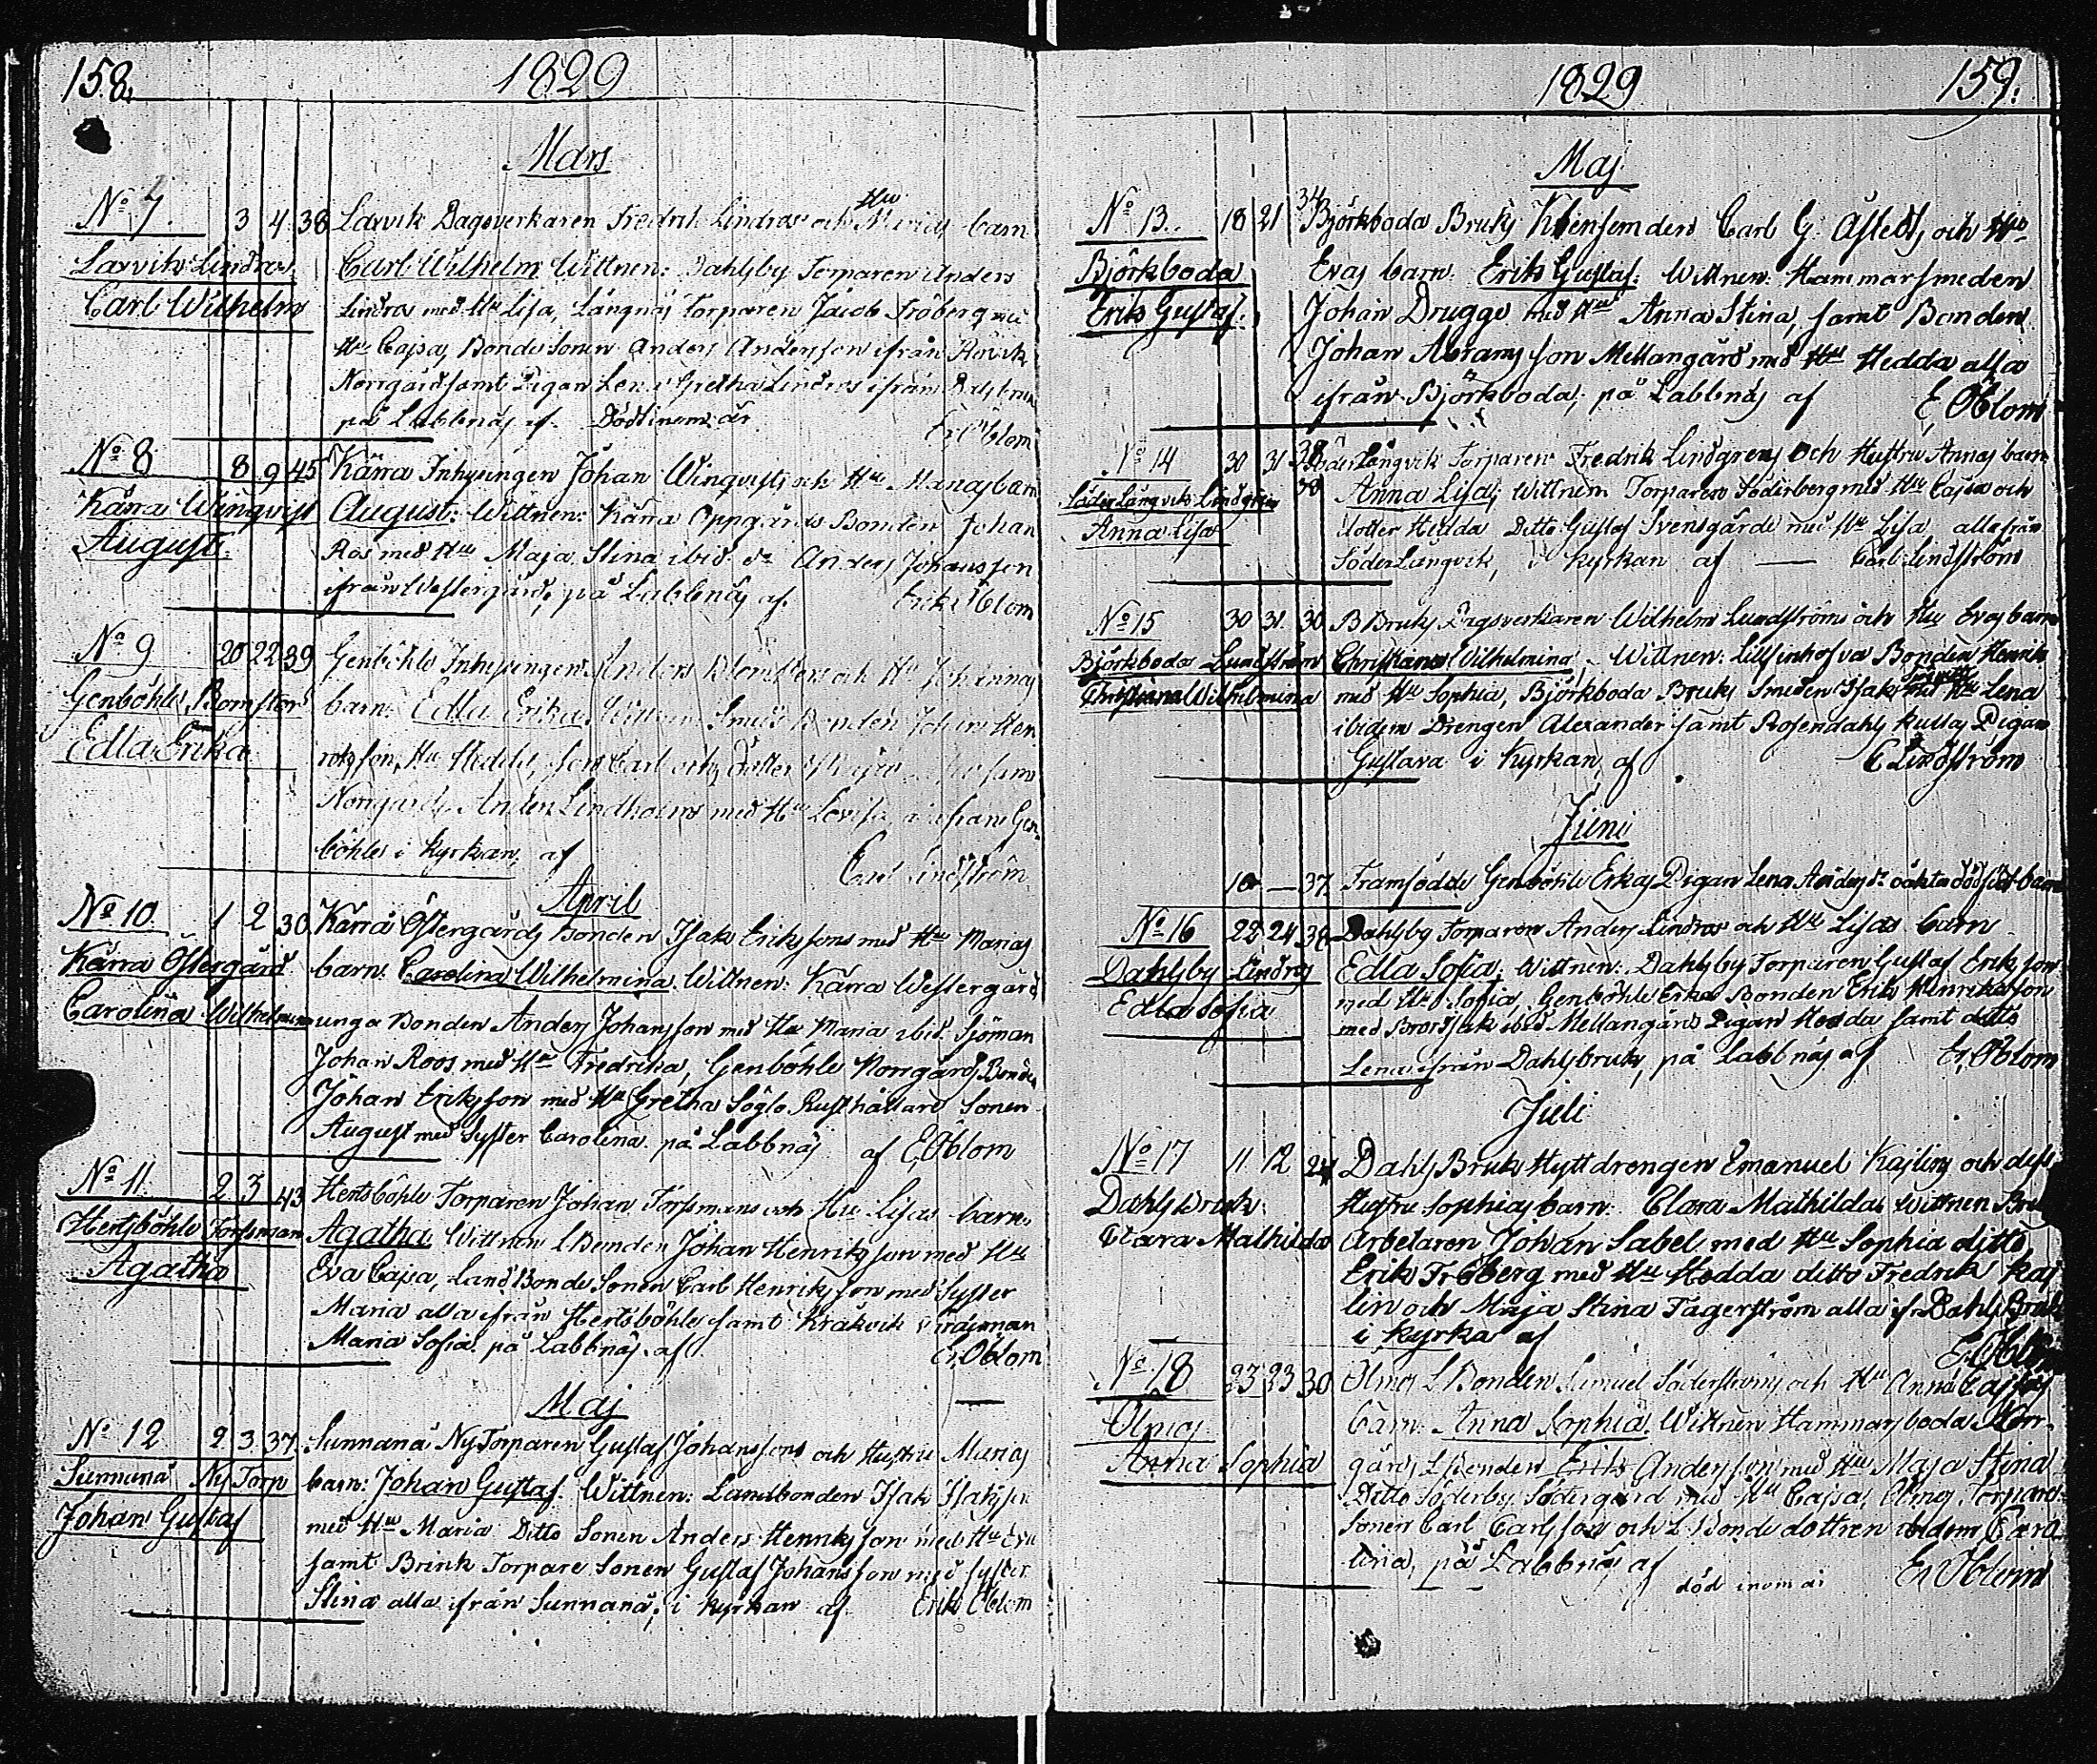 158.
1829
Mars
No 7. 3 4 38 Laxvik Dagsverkaren Fredrik Lindros och Hu Marias barn
Laxvik Lindros Carl Wilhelm Wittnen: Dahlsby Torparen Anders
Carl Wilhelm Lindros med Hu Lisa, Långnäs Torparen Jacob Fröberg med
Hu Cajsa, Bonde Sonen Anders Andersson ifrån Rövik
Norrgård samt Pigan Lena Gretha Lindros ifrån Dalsbruk
på Labbnäs af. Död inom år Er. Öblom
No 8 8 9 45 Kärra Inhysingen Johan Winqvists och Hu Marias barn
Kärra Winqvist August: Wittnen: Kärra Oppgårds Bonden Johan
August. Ros med Hu Maja Stina ibid. do Anders Johansson
ifrån Westergård, på Labbnäs af. Erik Öblom
No 9 20 22 39 Genböhle Inhysingen Anders och Hu Johannas
Genböhle Bomstor barn: Edla Erika Wittnen Bonden Johan Hen
Edla Erika riksson, Hu Hedda, son Carl och dotter
Norrgårds Anders Lindholms med Hu Lovisa ifrån Gen
böhle i Kyrkan, af Carl Lindström
April
No 10. 1 2 30. Kärra Östergårds Bonden Isak Erikssons med Hu Marias
Kärra Östergård barn: Carolina Wilhelmina. Wittnen: Kärra Westergård
Carolina Wilhelmina unga Bonden Anders Johansson med Hu Maria ibid. Sjöman
Johan Roos med Hu Fredrika, Genböhle Norrgårds Bonde
Johan Eriksson med Hu Gretha Söglo Rusthållare Sonen
August med Syster Carolina på Labbnäs af E. Öblom
No 11. 2 3 43 Hertsböhle Torparen Johan Torssmans och Hu Lisas barn
Hertsböhle Torssman Agatha Wittnen L Bonden Johan Henriksson med Hu
Agatha Eva Cajsa, Land Bonde Sonen Carl Henriksson med Syster
Maria alla ifrån Hertsböhle samt Kråkvik
Maria Sofia på Labbnäs. af Er. Öblom
Maj
No 12 2 3 37. Sunnanå Ny Torparen Gustaf Johanssons och Hustru Marias
Sunnanå Ny Torp barn: Johan Gustaf. Wittnen: Landbonden Isak Isaksson
Johan Gustaf med Hu Maria Ditto Sonen Anders Henriksson med Hu Eva
samt Brink Torpare Sonen Gustaf Johansson med syster
Stina alla ifrån Sunnanå; i kyrkan af Erik Öblom
1829
159.
Maj
No 13. 18 21 34 Björkboda Bruks Carl G. Åstedts och Hu
Björkboda Evas barn. Erik Gustaf: Wittnen: Hammarsmeden
Erik Gustaf. Johan Drugge med Hu Anna Stina, samt Bonden
Johan Abramsson Mellangård med Hu Hedda alla
ifrån Björkboda, på Labbnäs af E. Öblom
No 14 30 31 38 Söder Långvik Torparen Fredrik Lindgrens och Hustru Annas barn
Söder Långvik Lindgren 38 Anna Lisa; Wittnen Torparen Söderberg med Hu Cajsa och
Anna Lisa dotter Hedda Ditto Gustaf Svensgårds med Hu Lisa alla från
Söder Långvik, i Kyrkan af Carl Lindström
No 15 30 31. 30 B Bruks Dagsverkaren Wilhelm Lundströms och Hu Evas barn
Björkboda Lundström Christiana Wilhelmina. Wittnen: Lillfinhofva Bonden Henrik
Christiana Wilhelmina med Hu Sophia, Björkboda Bruks Smeden Isak med Hu Lena
ibidem Drengen Alexander samt Rosendahls kulla Pigan
Gustava i Kyrkan, af C Lindström
Juni
10 — 37 Framfödde Genböhle Erkas Pigan Lena Anders dr oäkta dödfödt barn
No 16 22 24 38 Dahlsby Torparen Anders Lindros och Hu Lisas barn
Dahlsby Lindros Edla Sofia; Wittnen: Dahlsby Torparen Gustaf Eriksson
Edla Sofia med Hu Sofia, Genböhle Erkas Bonden Erik Henriksson
med Bror Isak ibid Mellangård Pigan Hedda samt ditto
Lena ifrån Dahlsbruk, på Labbnäs af Er. Öblom
Juli
No 17 11 12 24 Dahls Bruk Hyttdrengen Emanuel Kajlins och dess
Dahls Bruk. Hustru Sophias barn: Clara Mathilda. Wittnen Bru
Clara Mathilda Arbetaren Johan Sabel med Hu Sophia ditto
Erik Fröberg med Hu Hedda ditto Fredrik Kaj
lin och Maja Stina Tagerström alla ifr Dahls Bruk
i kyrka af E. Öblom
No 18 23 23 30 Ölmos L Bonden Samuel Söderströms och Hu Anna Cajsas
Ölmos barn: Anna Sophia. Wittnen Hammarsboda Norr
Anna Sophia gårds L Bonden Erik Andersson med Hu Maja Stina
Ditto Söderby Södergård med Hu Cajsa, Ölmos Torpare
Sonen Carl Carlsson och L Bonde dottren ibidem Caro
lina, på Labbnäs af död inom år Er. Öblom